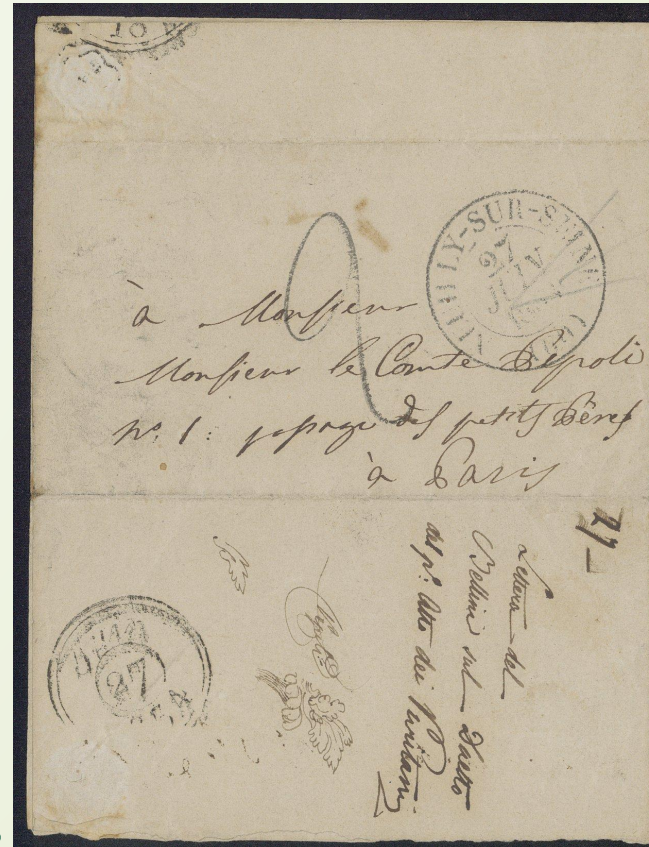 NEUILLY-SUR-SEINE
27
JUIN
2
à Monsieur
Monsieur le Comte Pepoli
nº. 1: passage des petits Pères
à Paris
27
Lettera del
Bellini sul Duetto
del pº. Atto dei Puritani
Pepoli
JUIN
27